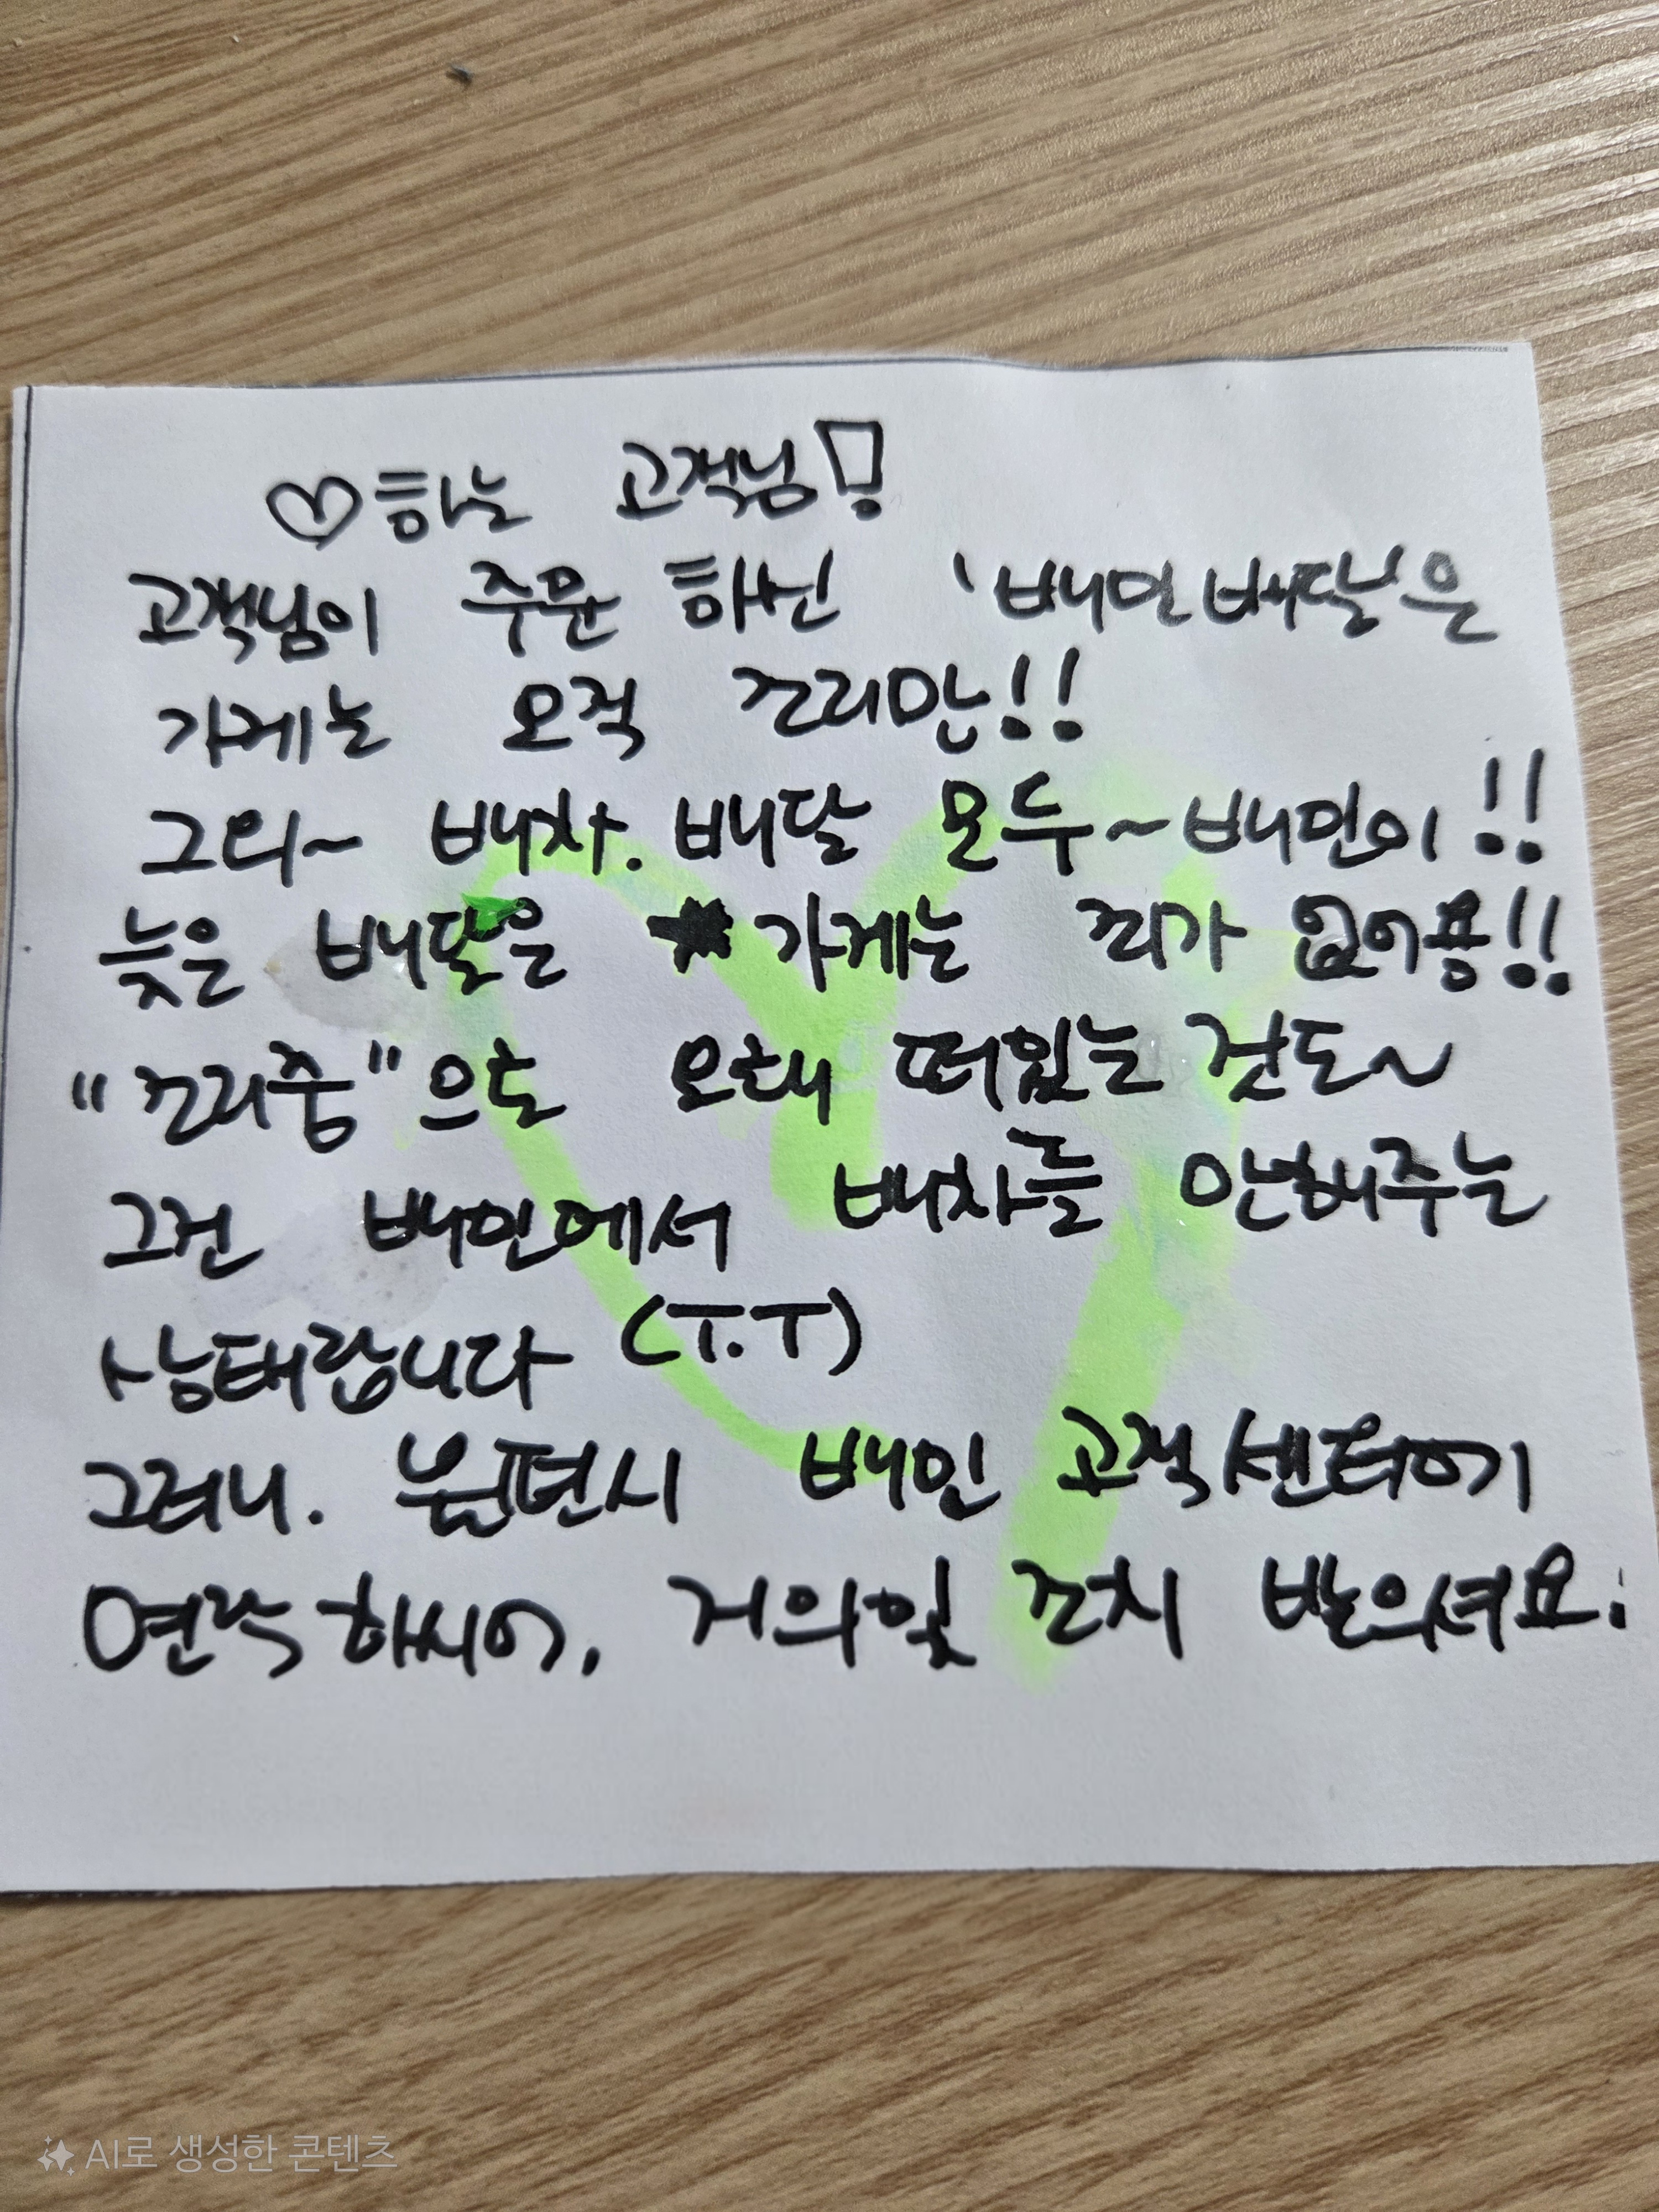 ♡하는 고객님!
고객님이 주문 하신 '배민배달'은
가게는 오직 조리만!!
그외~ 배차. 배달 모두~배민이!!
늦은 배달은 가게는 죄가 없어용!!
"조리중"으로 오래 떠있는 것도~
그건 배민에서 배차를 안해주는
상태랍니다 (T.T)
그러니. 불편시 배민 고객센터에
연락하시어, 거의일 조치 받으셔요!